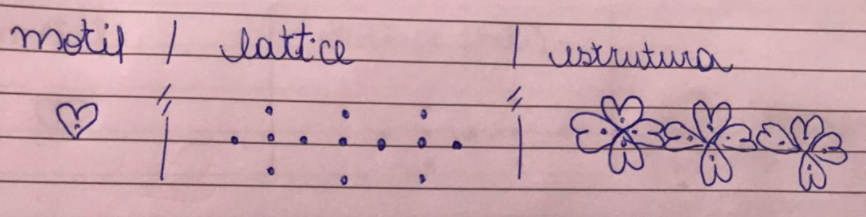 motif | lattice | estrutura